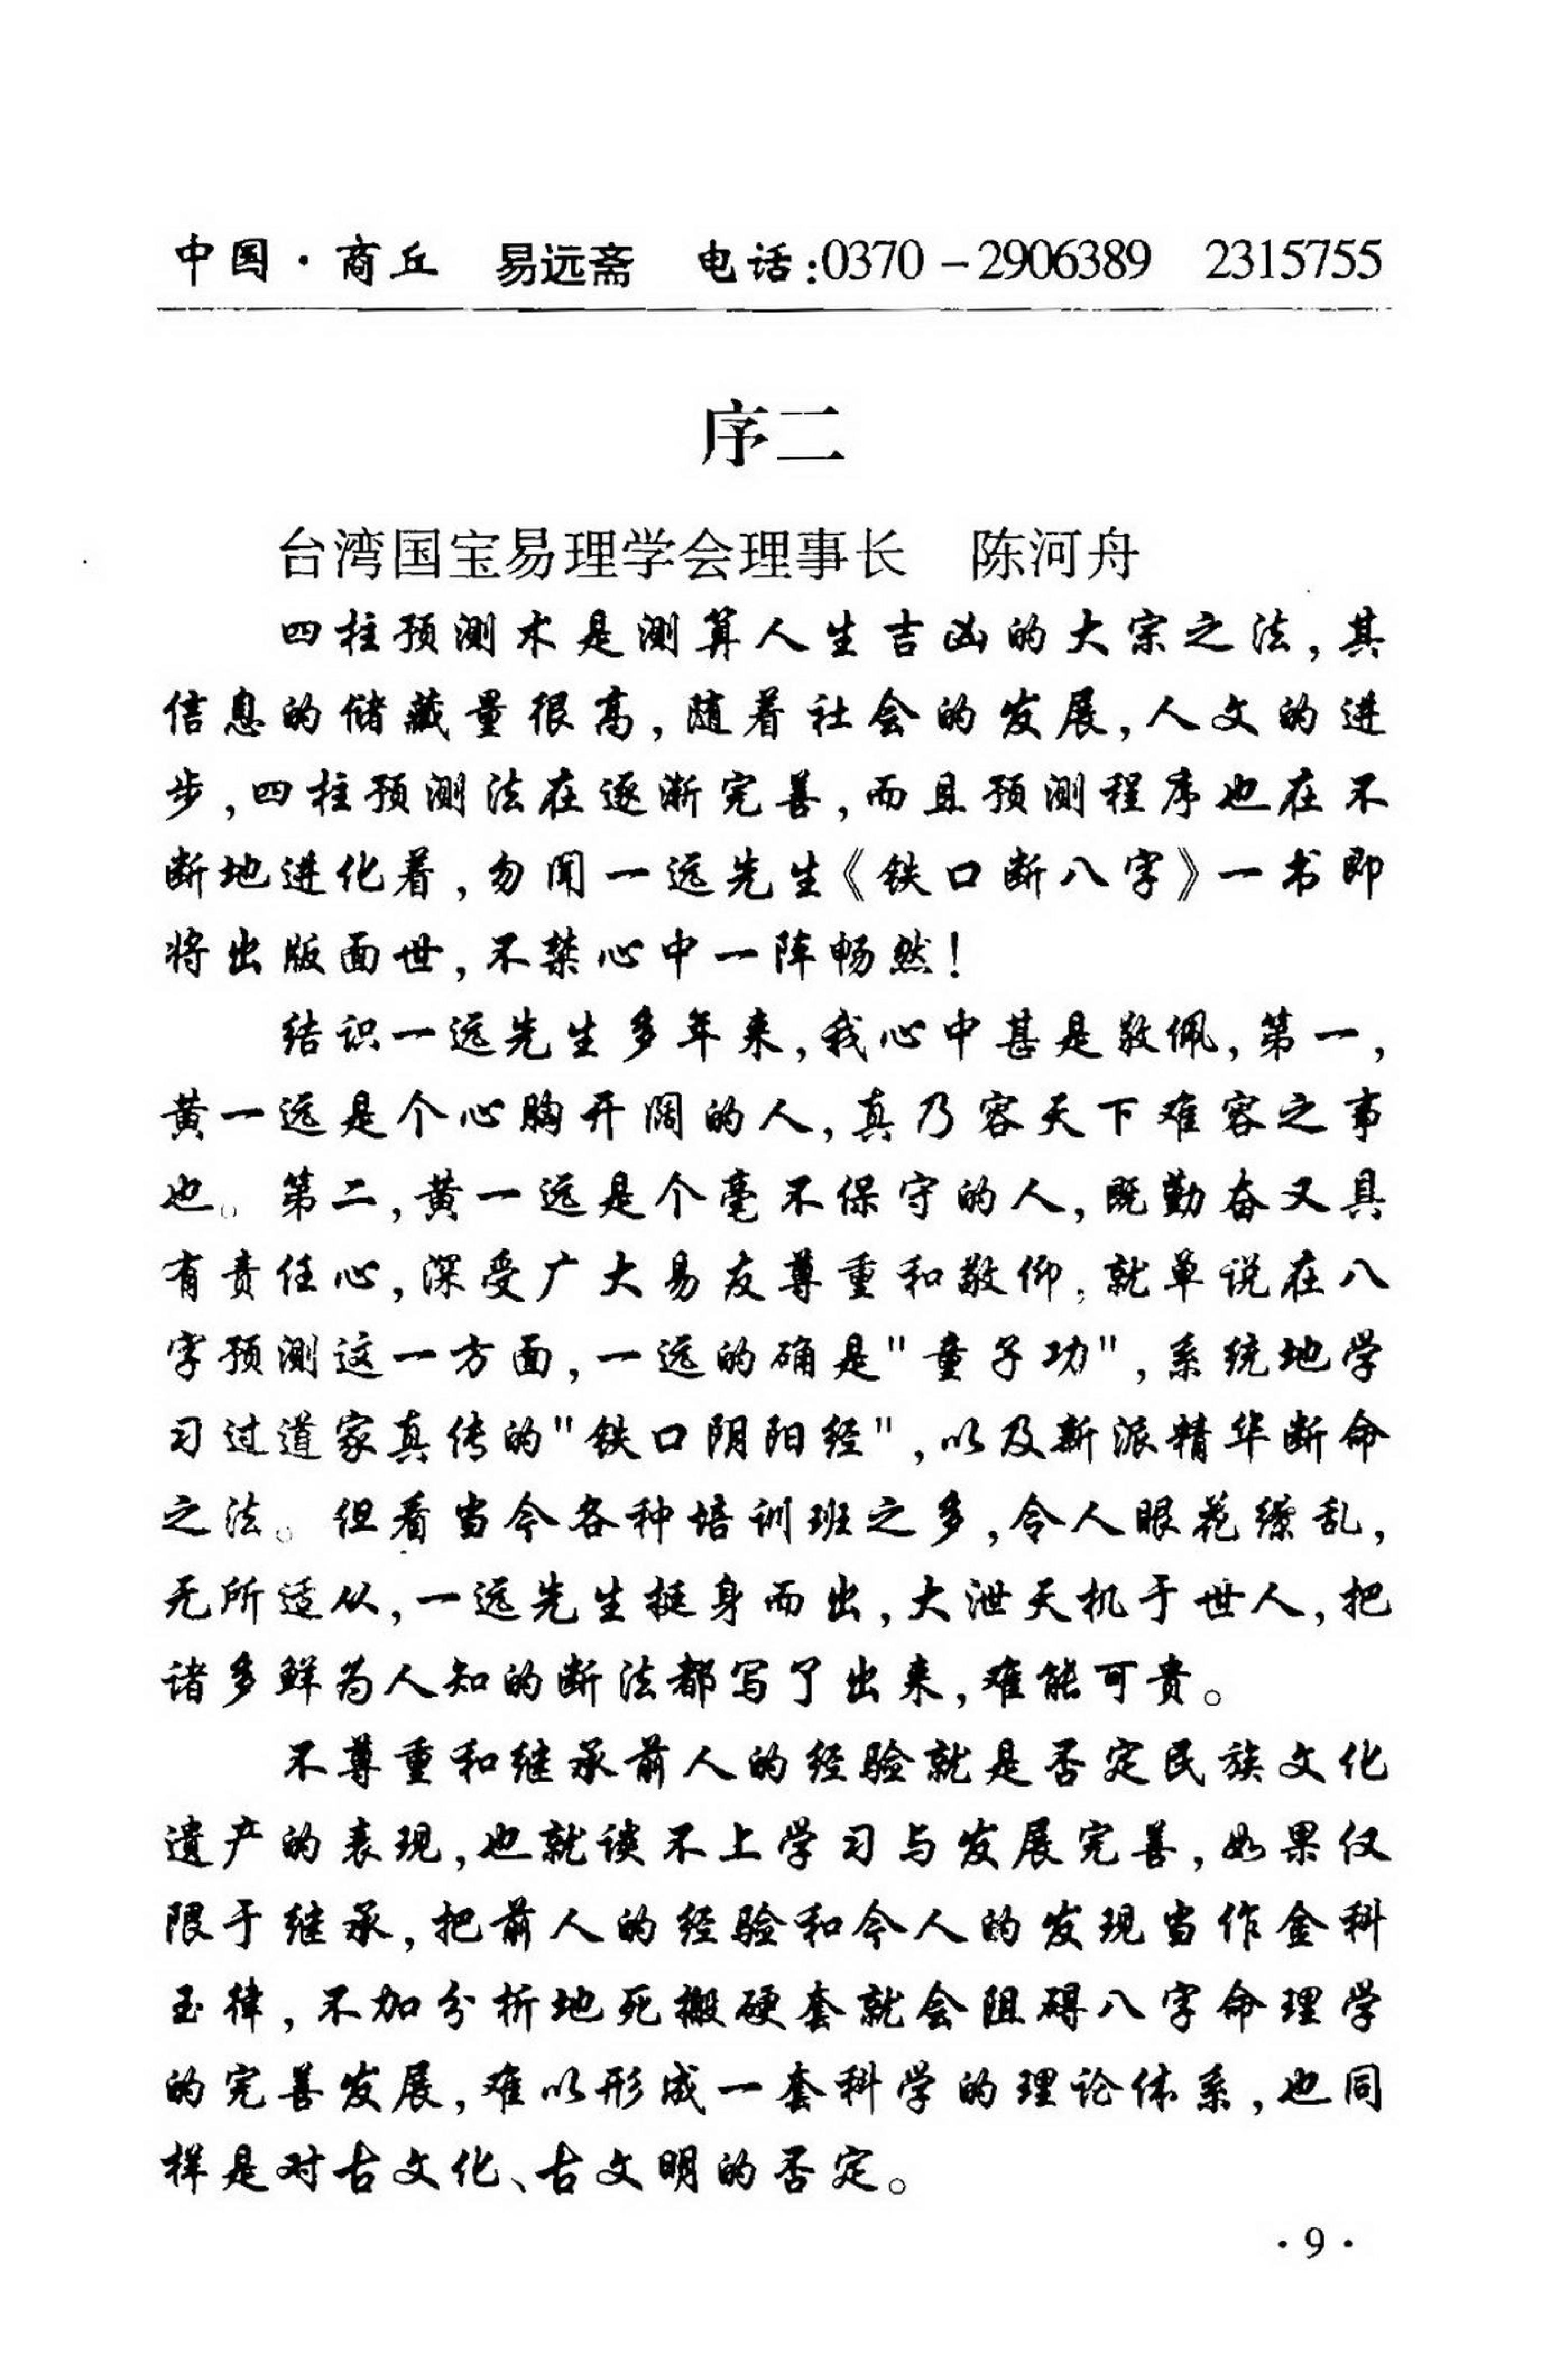 中国·商丘 易远斋 电话:0370-2906389 2315755
序二
台湾国宝易理学会理事长 陈河舟
四柱预测术是测算人生吉凶的大宗之法,其
信息的储藏量很高,随着社会的发展,人文的进
步,四柱预测法在逐渐完善,而且预测程序也在不
断地进化着,勿闻一远先生《铁口断八字》一书即
将出版面世,不禁心中一阵畅然!
结识一远先生多年来,我心中甚是敬佩,第一,
黄一远是个心胸开阔的人,真乃容天下难容之事
也。第二,黄一远是个毫不保守的人,既勤奋又具
有责任心,深受广大易友尊重和敬仰,就单说在八
字预测这一方面,一远的确是"童子功",系统地学
习过道家真传的"铁口阴阳经",以及新派精华断命
之法。但看当今各种培训班之多,令人眼花缭乱,
无所适从,一远先生挺身而出,大泄天机于世人,把
诸多鲜为人知的断法都写了出来,难能可贵。
不尊重和继承前人的经验就是否定民族文化
遗产的表现,也就谈不上学习与发展完善,如果仅
限于继承,把前人的经验和今人的发现当作金科
玉律,不加分析地死搬硬套就会阻碍八字命理学
的完善发展,难以形成一套科学的理论体系,也同
样是对古文化、古文明的否定。
·9·